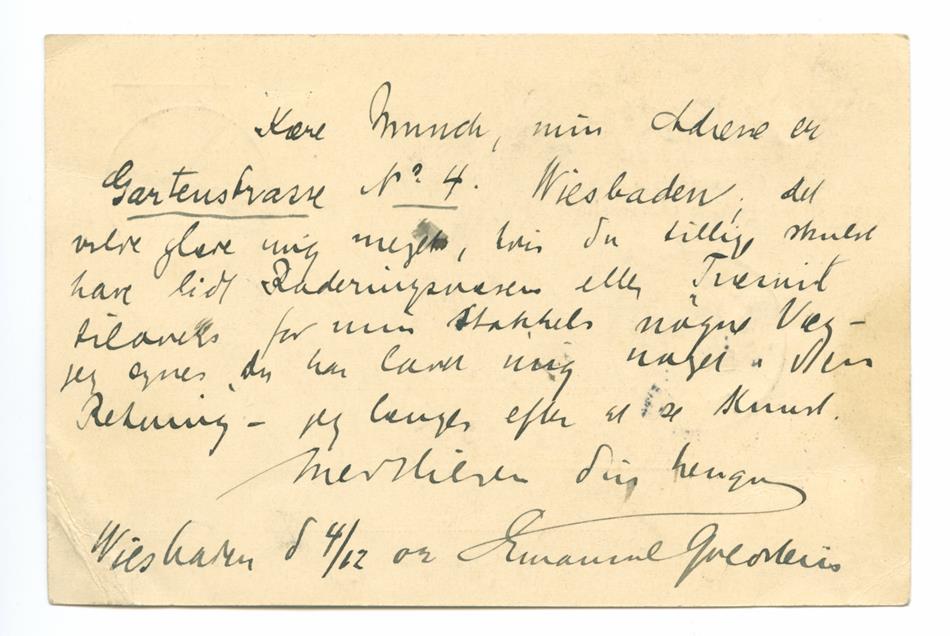 Kære Munch, min Adresse er
Gartenstrasse No 4. Wiesbaden; det
vilde glæde mig meget, hvis du tillige skulde
have lidt Raderingsvæsen eller Træsnit
tilovers for min stakkels nøgne Væg –
jeg synes du har lovet mig noget i den
Retning – jeg længes efter at se Kunst.
Med Hilsen din hengivne
Wiesbaden d 4/12 02 Emanuel Goldstein